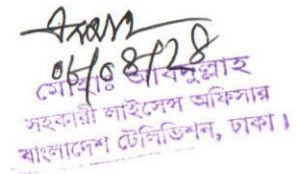 ০৮/০৪/২৪
মোঃ আবদুল্লাহ
সহকারী লাইসেন্স অফিসার
বাংলাদেশ টেলিভিশন, ঢাকা।